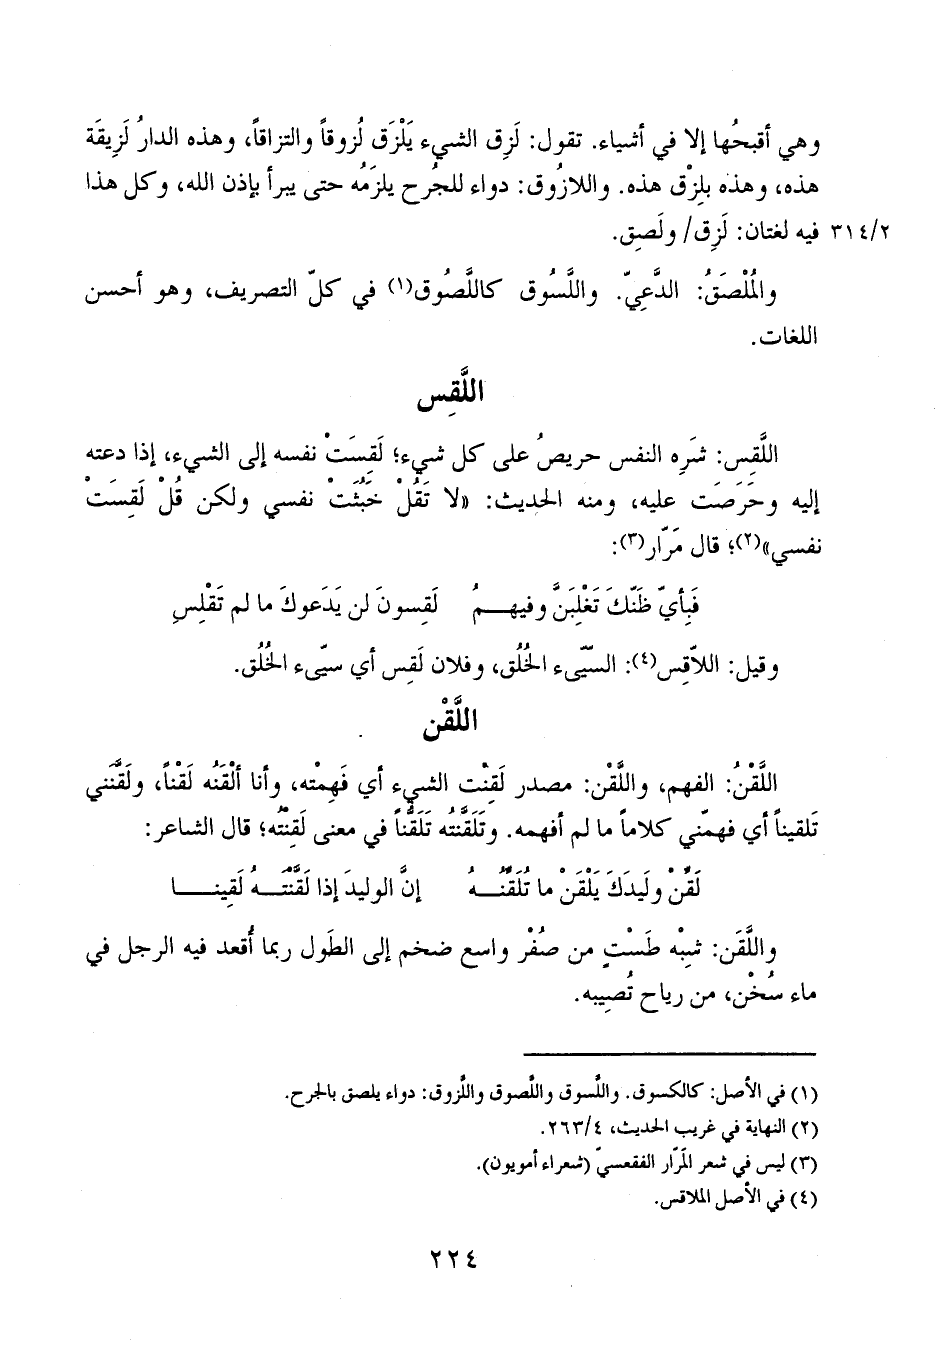 وهي أقبحُها إلا في أشياء. تقول: لَزِق الشيء يَلْزَق لُزوقاً والتزاقاً، وهذه الدارُ لَزِيقَة
هذه، وهذه بلِزْق هذه. واللازُوق: دواء للجُرح يلزَمُه حتى يبرأ بإذن الله، وكل هذا
٣١٤/٢ فيه لغتان: لَزِق/ ولَصِق.
والمُلْصَقُ: الدَّعِيّ. واللَّسُوق كاللَّصُوق(١) في كلّ التصريف، وهو أحسن
اللغات.
اللَّقِس
اللَّقِس: شَرَه النفس حريصُ على كل شيء؛ لَقِسَتْ نفسه إلى الشيء، إذا دعته
إليه وحَرَصَت عليه، ومنه الحديث: «لا تَقُلْ خَبُثَتْ نفسي ولكن قُلْ لَقِسَتْ
نفسي»(٢)؛ قال مَرّار(٣):
فَبِأيّ ظَنّكَ تَغْلِبَنَّ وفيهــمُ لَقِسونَ لن يَدَعوكَ ما لم تَقْلِسِ
وقيل: اللاّقِس(٤): السيّىء الخُلُق، وفلان لَقِس أي سيّىء الخُلُق.
اللَّقْن
اللَّقْنُ: الفهم، واللَّقْن: مصدر لَقِنْت الشيء أي فَهِمْته، وأنا ألْقَنُه لَقْناً، ولَقَّنَني
تَلقيناً أي فهمّني كلاماً ما لم أفهمه. وتَلَقَّنتُه تَلَقُّناً في معنى لَقِنْتُه؛ قال الشاعر:
لَقِّنْ وليدَكَ يَلْقَنْ ما تُلَقِّنُــهُ إنَّ الوليدَ إذا لَقَّنْتَــهُ لَقِينــا
واللَّقَن: شِبْه طَسْتٍ من صُفْر واسع ضخم إلى الطول ربما أُقعد فيه الرجل في
ماء سُخْن، من رياح تُصِيبه.
(١) في الأصل: كالكسوق. واللَّسوق واللَّصوق واللَّزوق: دواء يلصق بالجرح.
(٢) النهاية في غريب الحديث، ٢٦٣/٤.
(٣) ليس في شعر المَرّار الفقعسيّ (شعراء أمويون).
(٤) في الأصل الملاقس.
٢٢٤